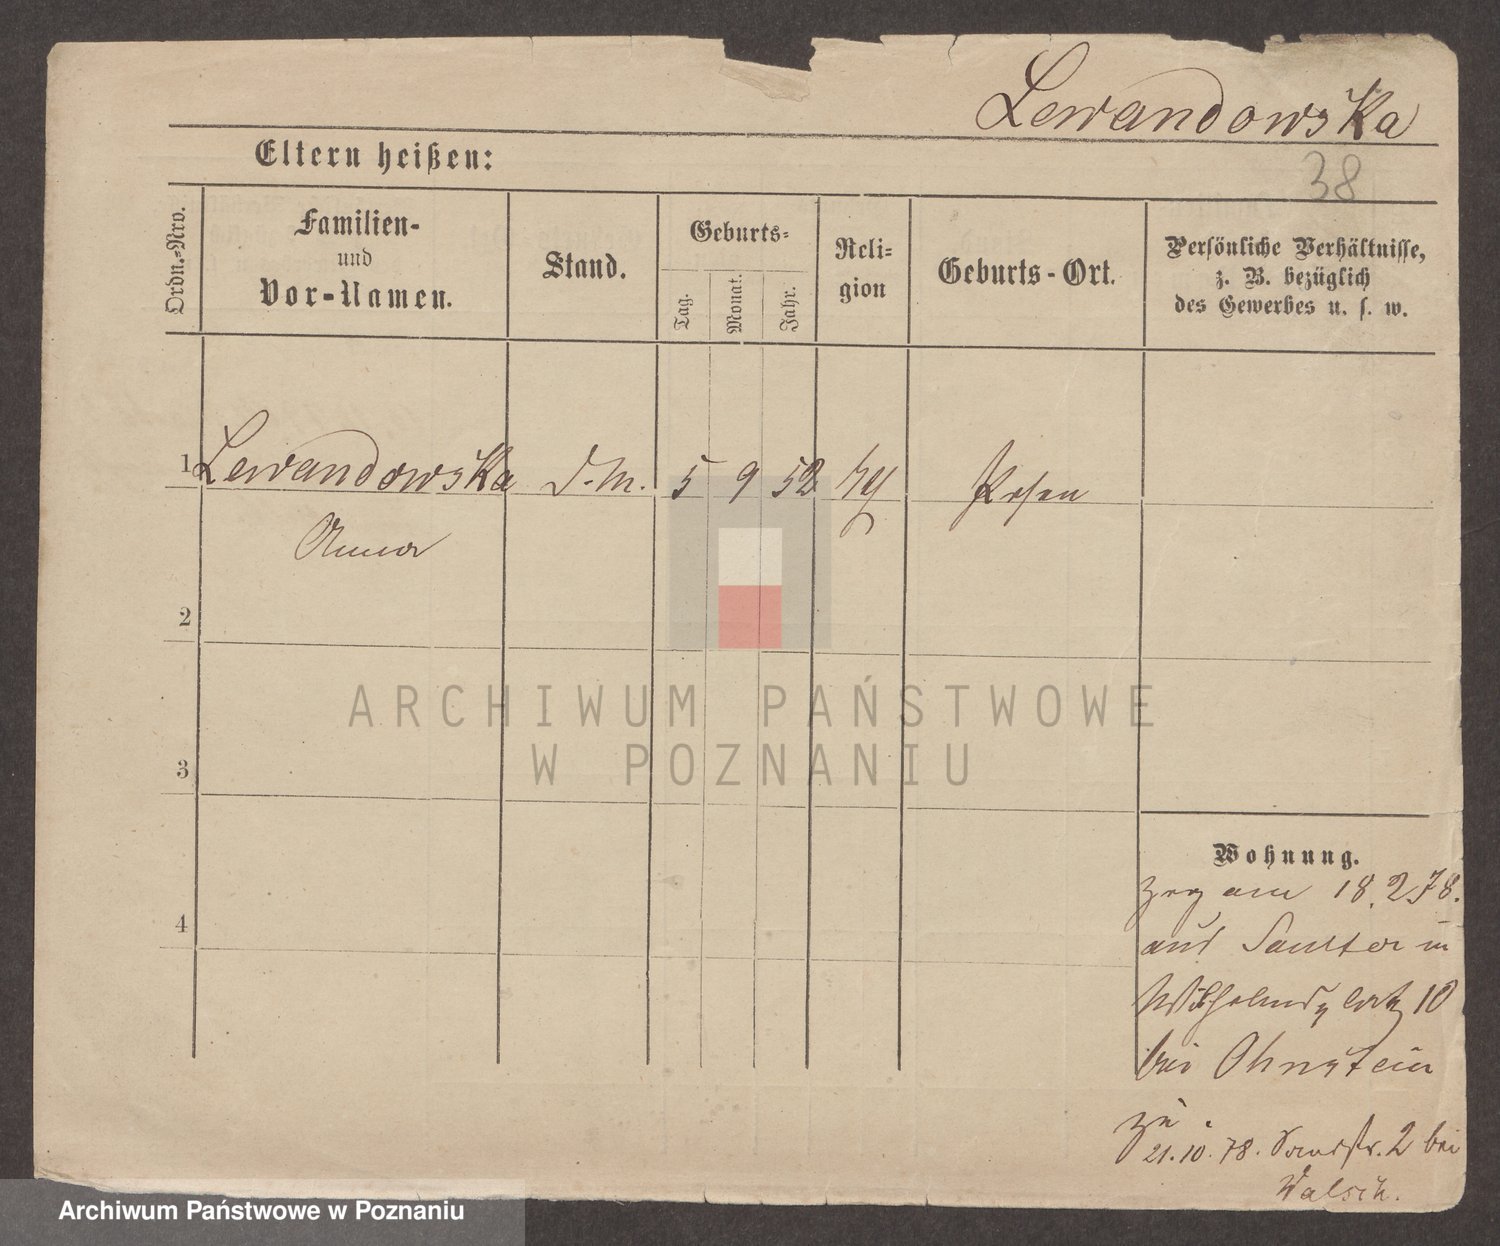 Lewandowska
38
Eltern heißen:
Ordn.-Nro.
Familien-
und
Vor-Namen.
Stand.
Geburts-
Tag.
Monat.
Jahr.
Reli-
gion
Geburts-Ort.
Persönliche Verhältnisse,
z. B. bezüglich
des Gewerbes u. s. w.
1 Lewandowska D.M. 5 9 52 Posen
Anna
2
3
4
ARCHIWUM PAŃSTWOWE
W POZNANIU
Wohnung.
zog am 18.2.78.
aus in
Wilhelmsplatz 10
bei Ohnstein
zu
21.10.78. Sandstr. 2 bei
Archiwum Państwowe w Poznaniu